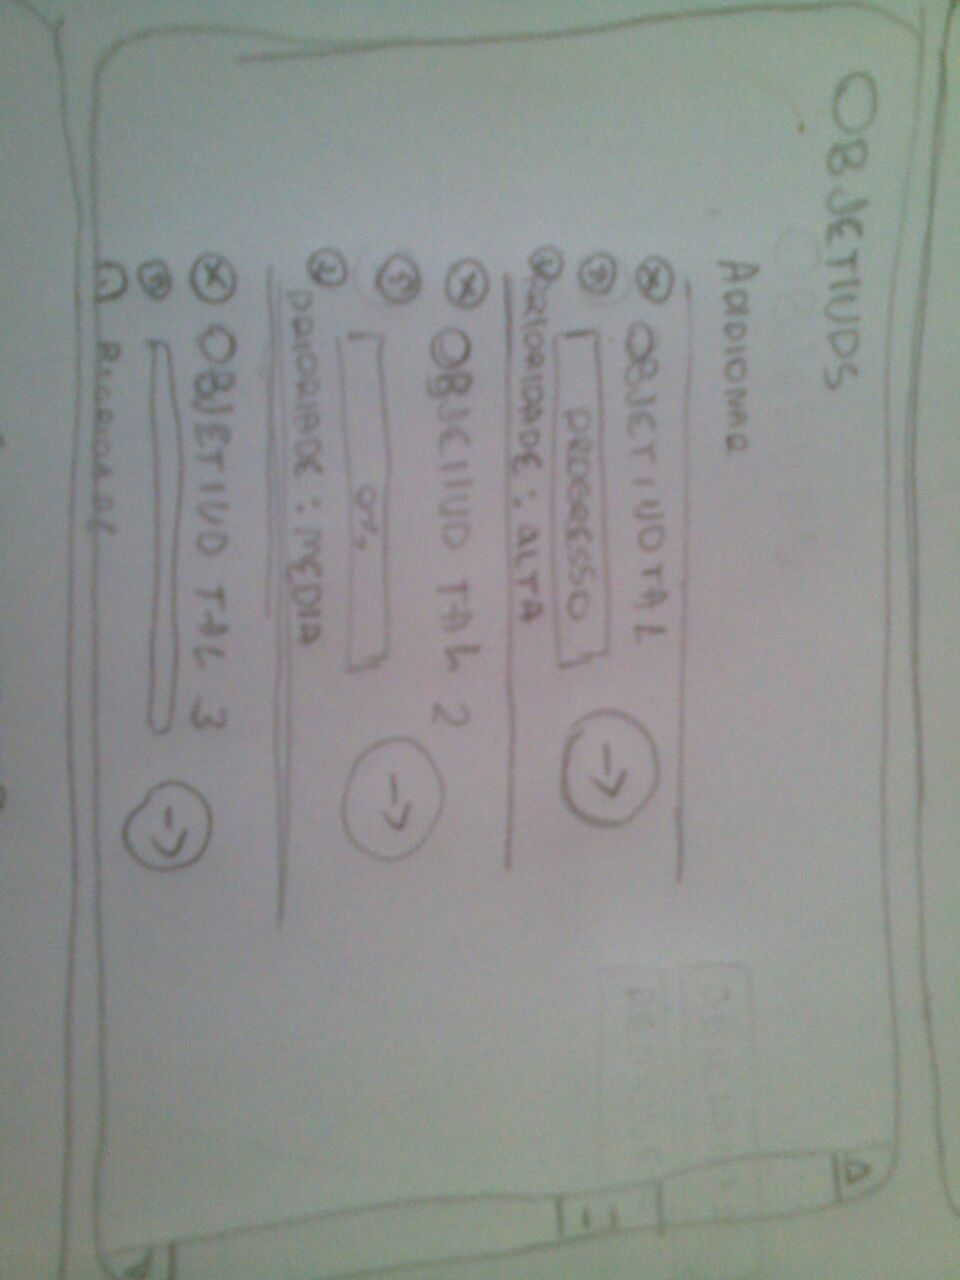 OBJETIVOS
ADICIONAR
OBJETIVO TAL
PROGRESSO
PRIORIDADE: ALTA
OBJETIVO TAL 2
0%
PRIORIDADE: MEDIA
OBJETIVO TAL 3